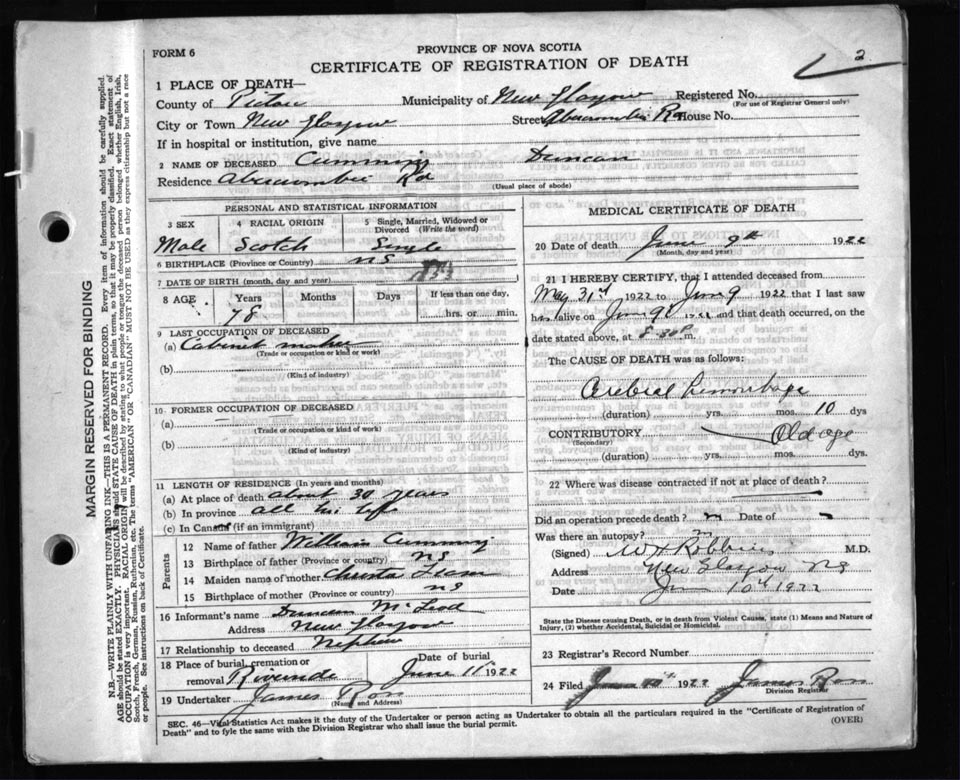 FORM 6
PROVINCE OF NOVA SCOTIA
CERTIFICATE OF REGISTRATION OF DEATH
2
1 PLACE OF DEATH—
County of Pictou Municipality of New Glasgow Registered No.
(For use of Registrar General only)
City or Town New Glasgow Street Abercrombie Rd House No.
If in hospital or institution, give name
2 NAME OF DECEASED Cumming Duncan
Residence Abercrombie Rd
(Usual place of abode)
PERSONAL AND STATISTICAL INFORMATION
3 SEX 4 RACIAL ORIGIN 5 Single, Married, Widowed or Divorced (Write the word)
Male Scotch Single
6 BIRTHPLACE (Province or Country) NS
7 DATE OF BIRTH (month, day and year)
8 AGE Years Months Days If less than one day,
78 hrs. or min.
9 LAST OCCUPATION OF DECEASED
(a) Cabinet maker
(Trade or occupation or kind or work)
(b)
(Kind of industry)
10 FORMER OCCUPATION OF DECEASED
(a)
(Trade or occupation or kind of work)
(b)
(Kind of industry)
11 LENGTH OF RESIDENCE (In years and months)
(a) At place of death about 30 years
(b) In province all his life
(c) In Canada (if an immigrant)
Parents
12 Name of father William Cumming
13 Birthplace of father (Province or country) NS
14 Maiden name of mother Christa
15 Birthplace of mother (Province or country) NS
16 Informant's name Duncan McLeod
Address New Glasgow
17 Relationship to deceased Nephew
18 Place of burial, cremation or removal Riverside Date of burial June 11th 1922
19 Undertaker James Ross
(Name and Address)
MEDICAL CERTIFICATE OF DEATH
20 Date of death June 9th 1922
(Month, day and year)
21 I HEREBY CERTIFY, that I attended deceased from
May 31st 1922 to June 9 1922 that I last saw
him alive on June 9 1922 and that death occurred, on the
date stated above, at 8-30 p m.
The CAUSE OF DEATH was as follows:
Cerebral hemorrhage
(duration) yrs. mos. 10 dys
CONTRIBUTORY Old age
(Secondary)
(duration) yrs. mos. dys.
22 Where was disease contracted if not at place of death?
Did an operation precede death? no Date of
Was there an autopsy? no
(Signed) W H Robbins M.D.
Address New Glasgow NS
Date June 10th 1922
State the Disease causing Death, or in death from Violent Causes, state (1) Means and Nature of Injury, (2) whether Accidental, Suicidal or Homicidal.
23 Registrar's Record Number
24 Filed June 10th 1922 James Ross
Division Registrar
SEC. 46—Vital Statistics Act makes it the duty of the Undertaker or person acting as Undertaker to obtain all the particulars required in the "Certificate of Registration of
Death" and to fyle the same with the Division Registrar who shall issue the burial permit.
(OVER)
MARGIN RESERVED FOR BINDING
N.B.—WRITE PLAINLY WITH UNFADING INK—THIS IS A PERMANENT RECORD. Every item of information should be carefully supplied.
AGE should be stated EXACTLY. PHYSICIANS should STATE CAUSE OF DEATH in plain terms, so that it may be properly classified. Exact statement of
OCCUPATION is very important. RACIAL ORIGIN will be described by stating to what people or tongue the deceased person belonged whether English, Irish,
Scotch, French, German, Russian, Ruthenian, etc. The terms "AMERICAN" OR "CANADIAN" MUST NOT BE USED as they express citizenship but not a race
or people. See instructions on back of Certificate.